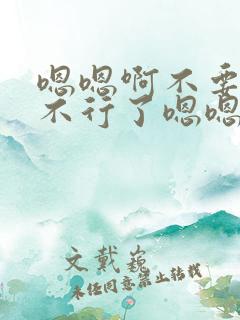 嗯嗯啊不要
不行了嗯嗯
文戴巍
未经同意禁止转载